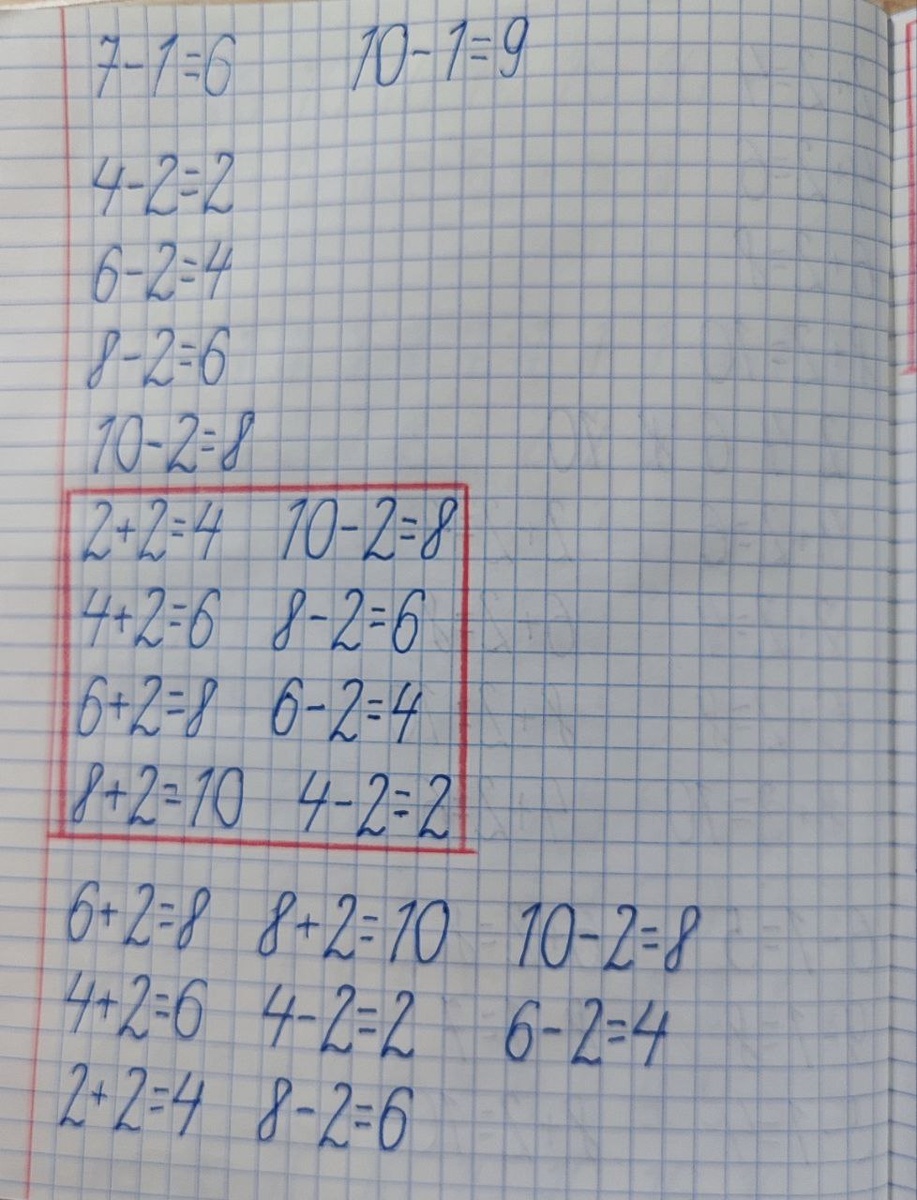 7-1=6 10-1=9
4-2=2
6-2=4
8-2=6
10-2=8
2+2=4 10-2=8
4+2=6 8-2=6
6+2=8 6-2=4
8+2=10 4-2=2
6+2=8 8+2=10 10-2=8
4+2=6 4-2=2 6-2=4
2+2=4 8-2=6